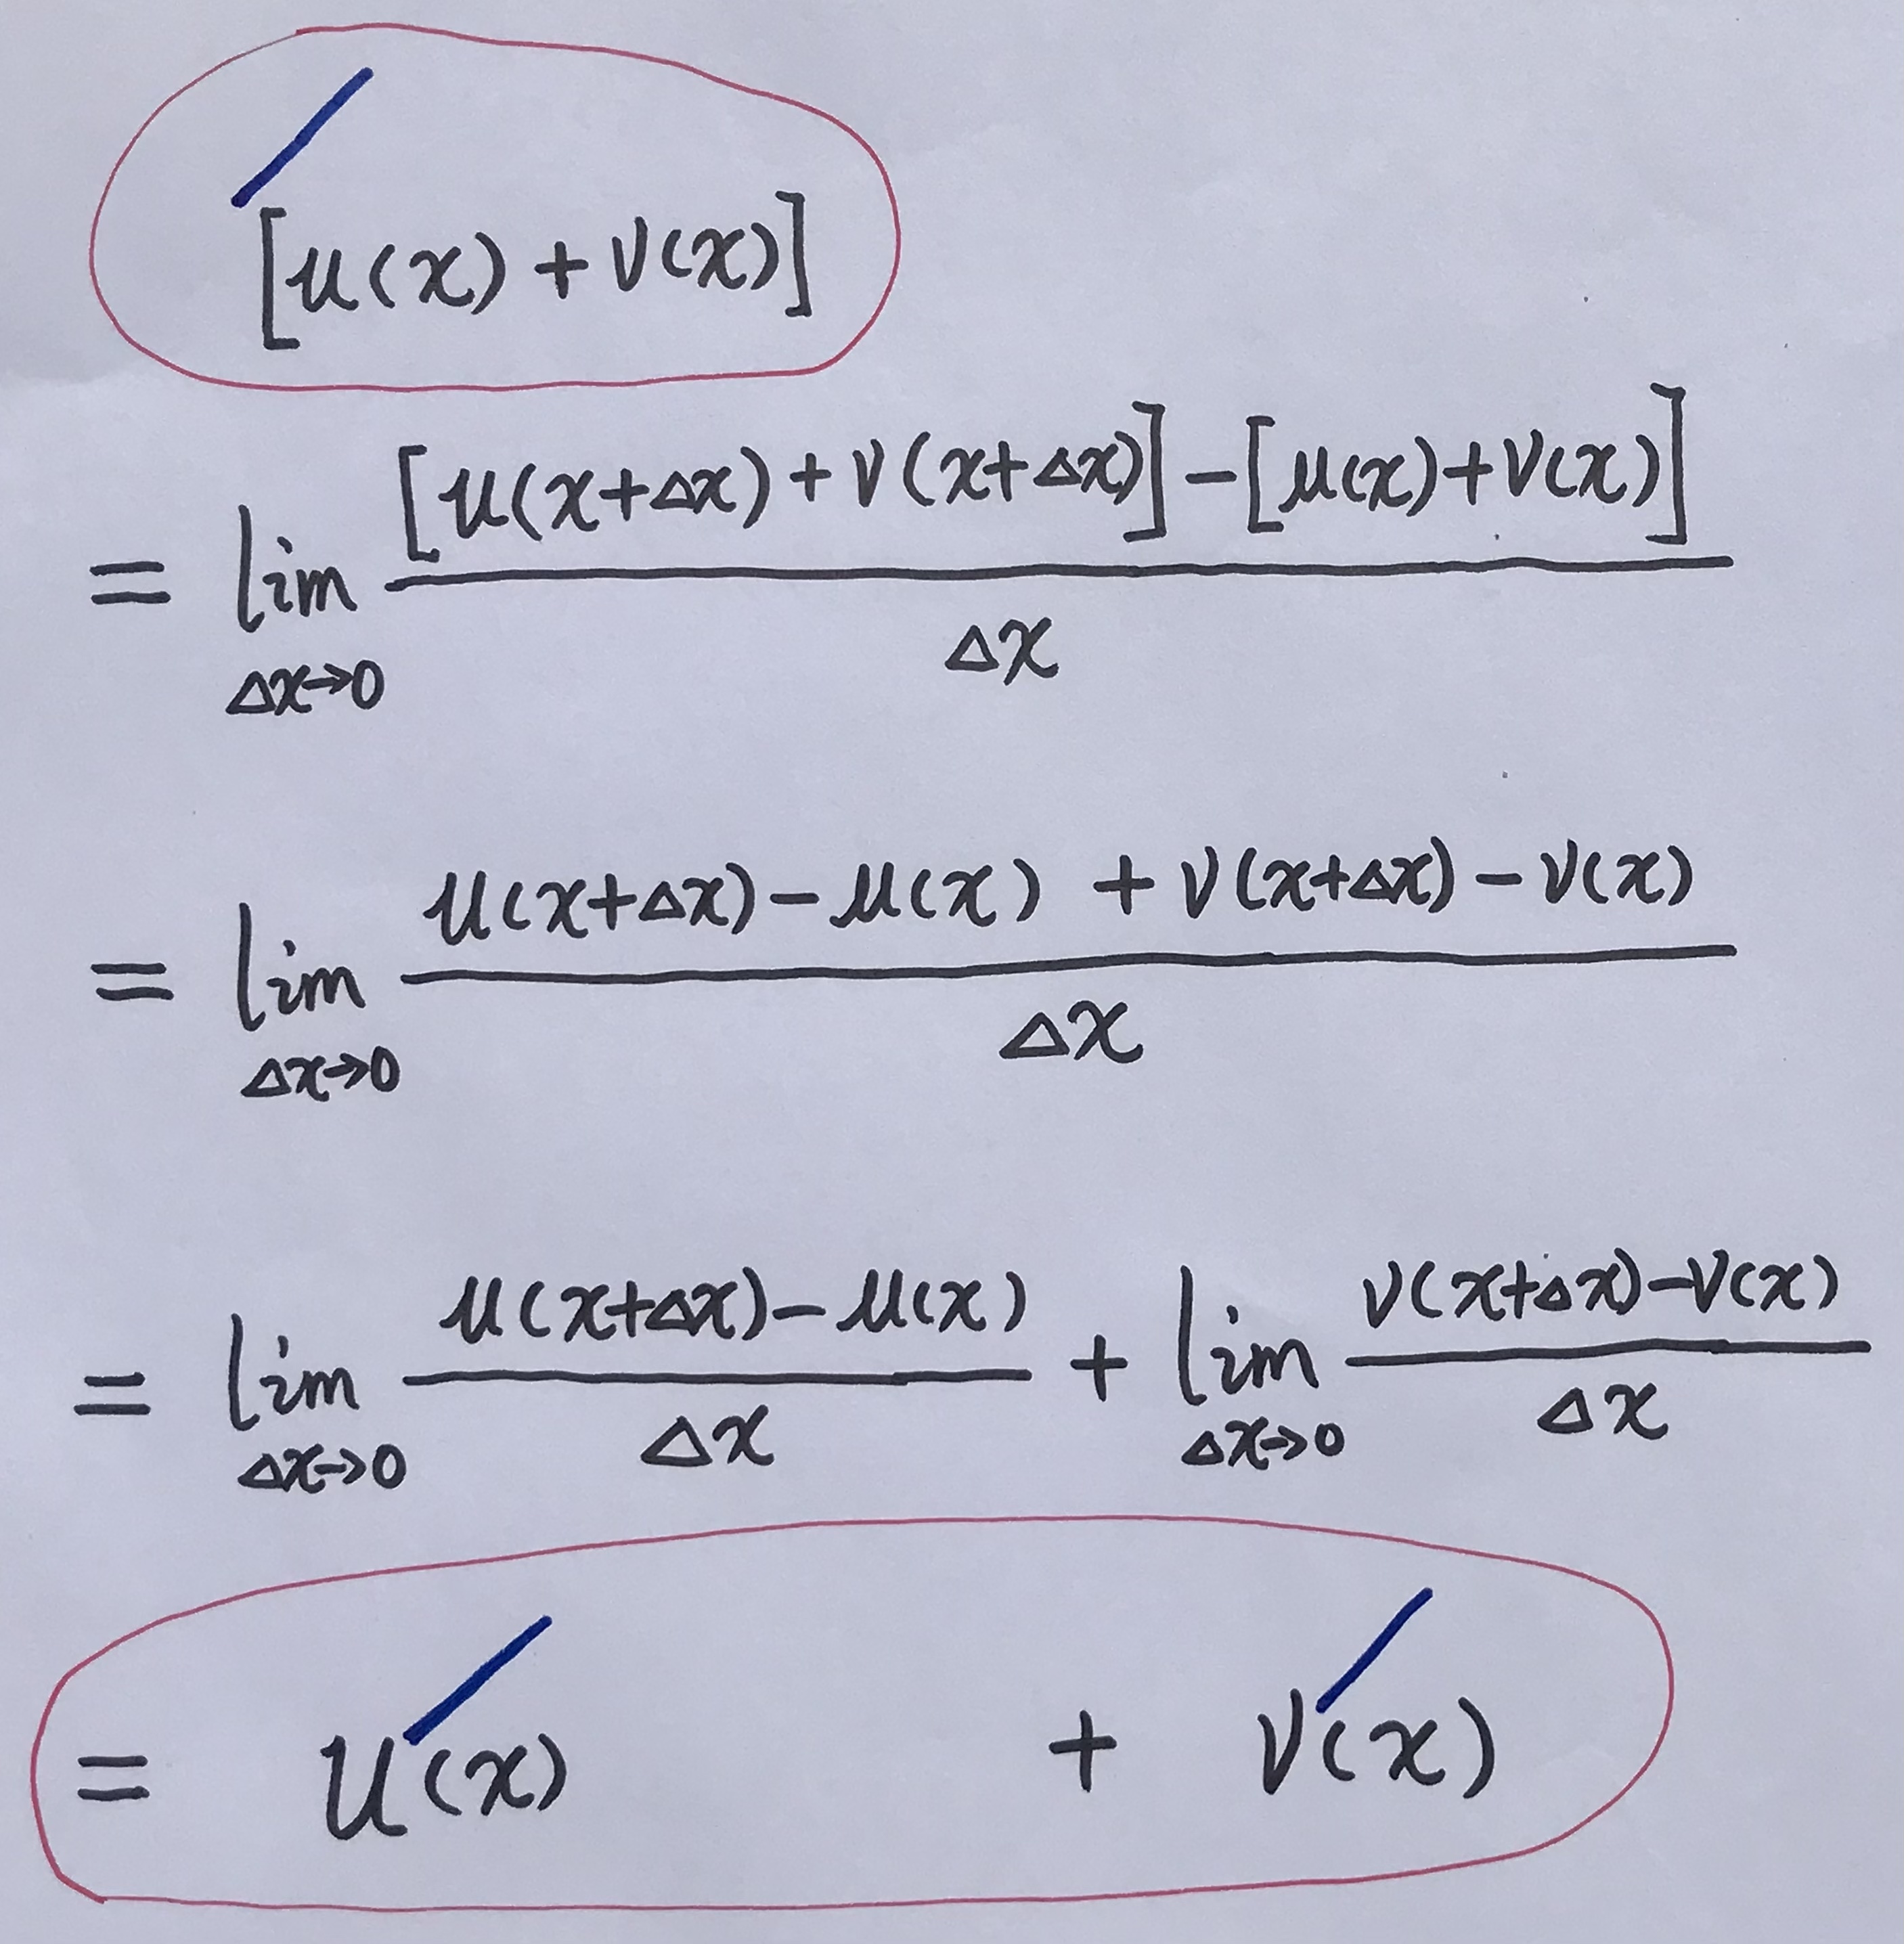 ′[u(x) + v(x)]
= lim_{Δx→0} \frac{[u(x+Δx) + v(x+Δx)] − [u(x) + v(x)]}{Δx}
= lim_{Δx→0} \frac{u(x+Δx) − u(x) + v(x+Δx) − v(x)}{Δx}
= lim_{Δx→0} \frac{u(x+Δx) − u(x)}{Δx} + lim_{Δx→0} \frac{v(x+Δx) − v(x)}{Δx}
= u′(x) + v′(x)